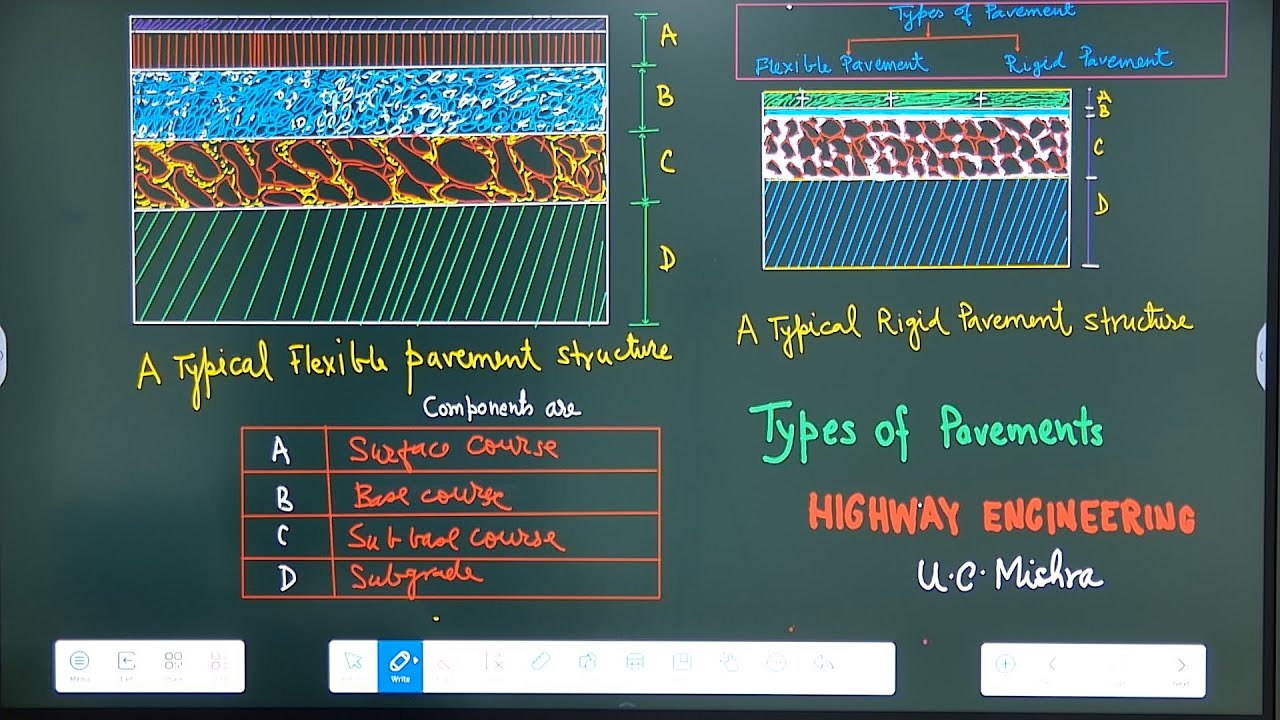 A
B
C
D
A Typical Flexible pavement structure
Components are
A Surface course
B Base course
C Subbase course
D Subgrade
Types of Pavement
Flexible Pavement Rigid Pavement
A
B
C
D
A Typical Rigid Pavement structure
Types of Pavements
HIGHWAY ENGINEERING
U.C. Mishra
Menu
Write
Next